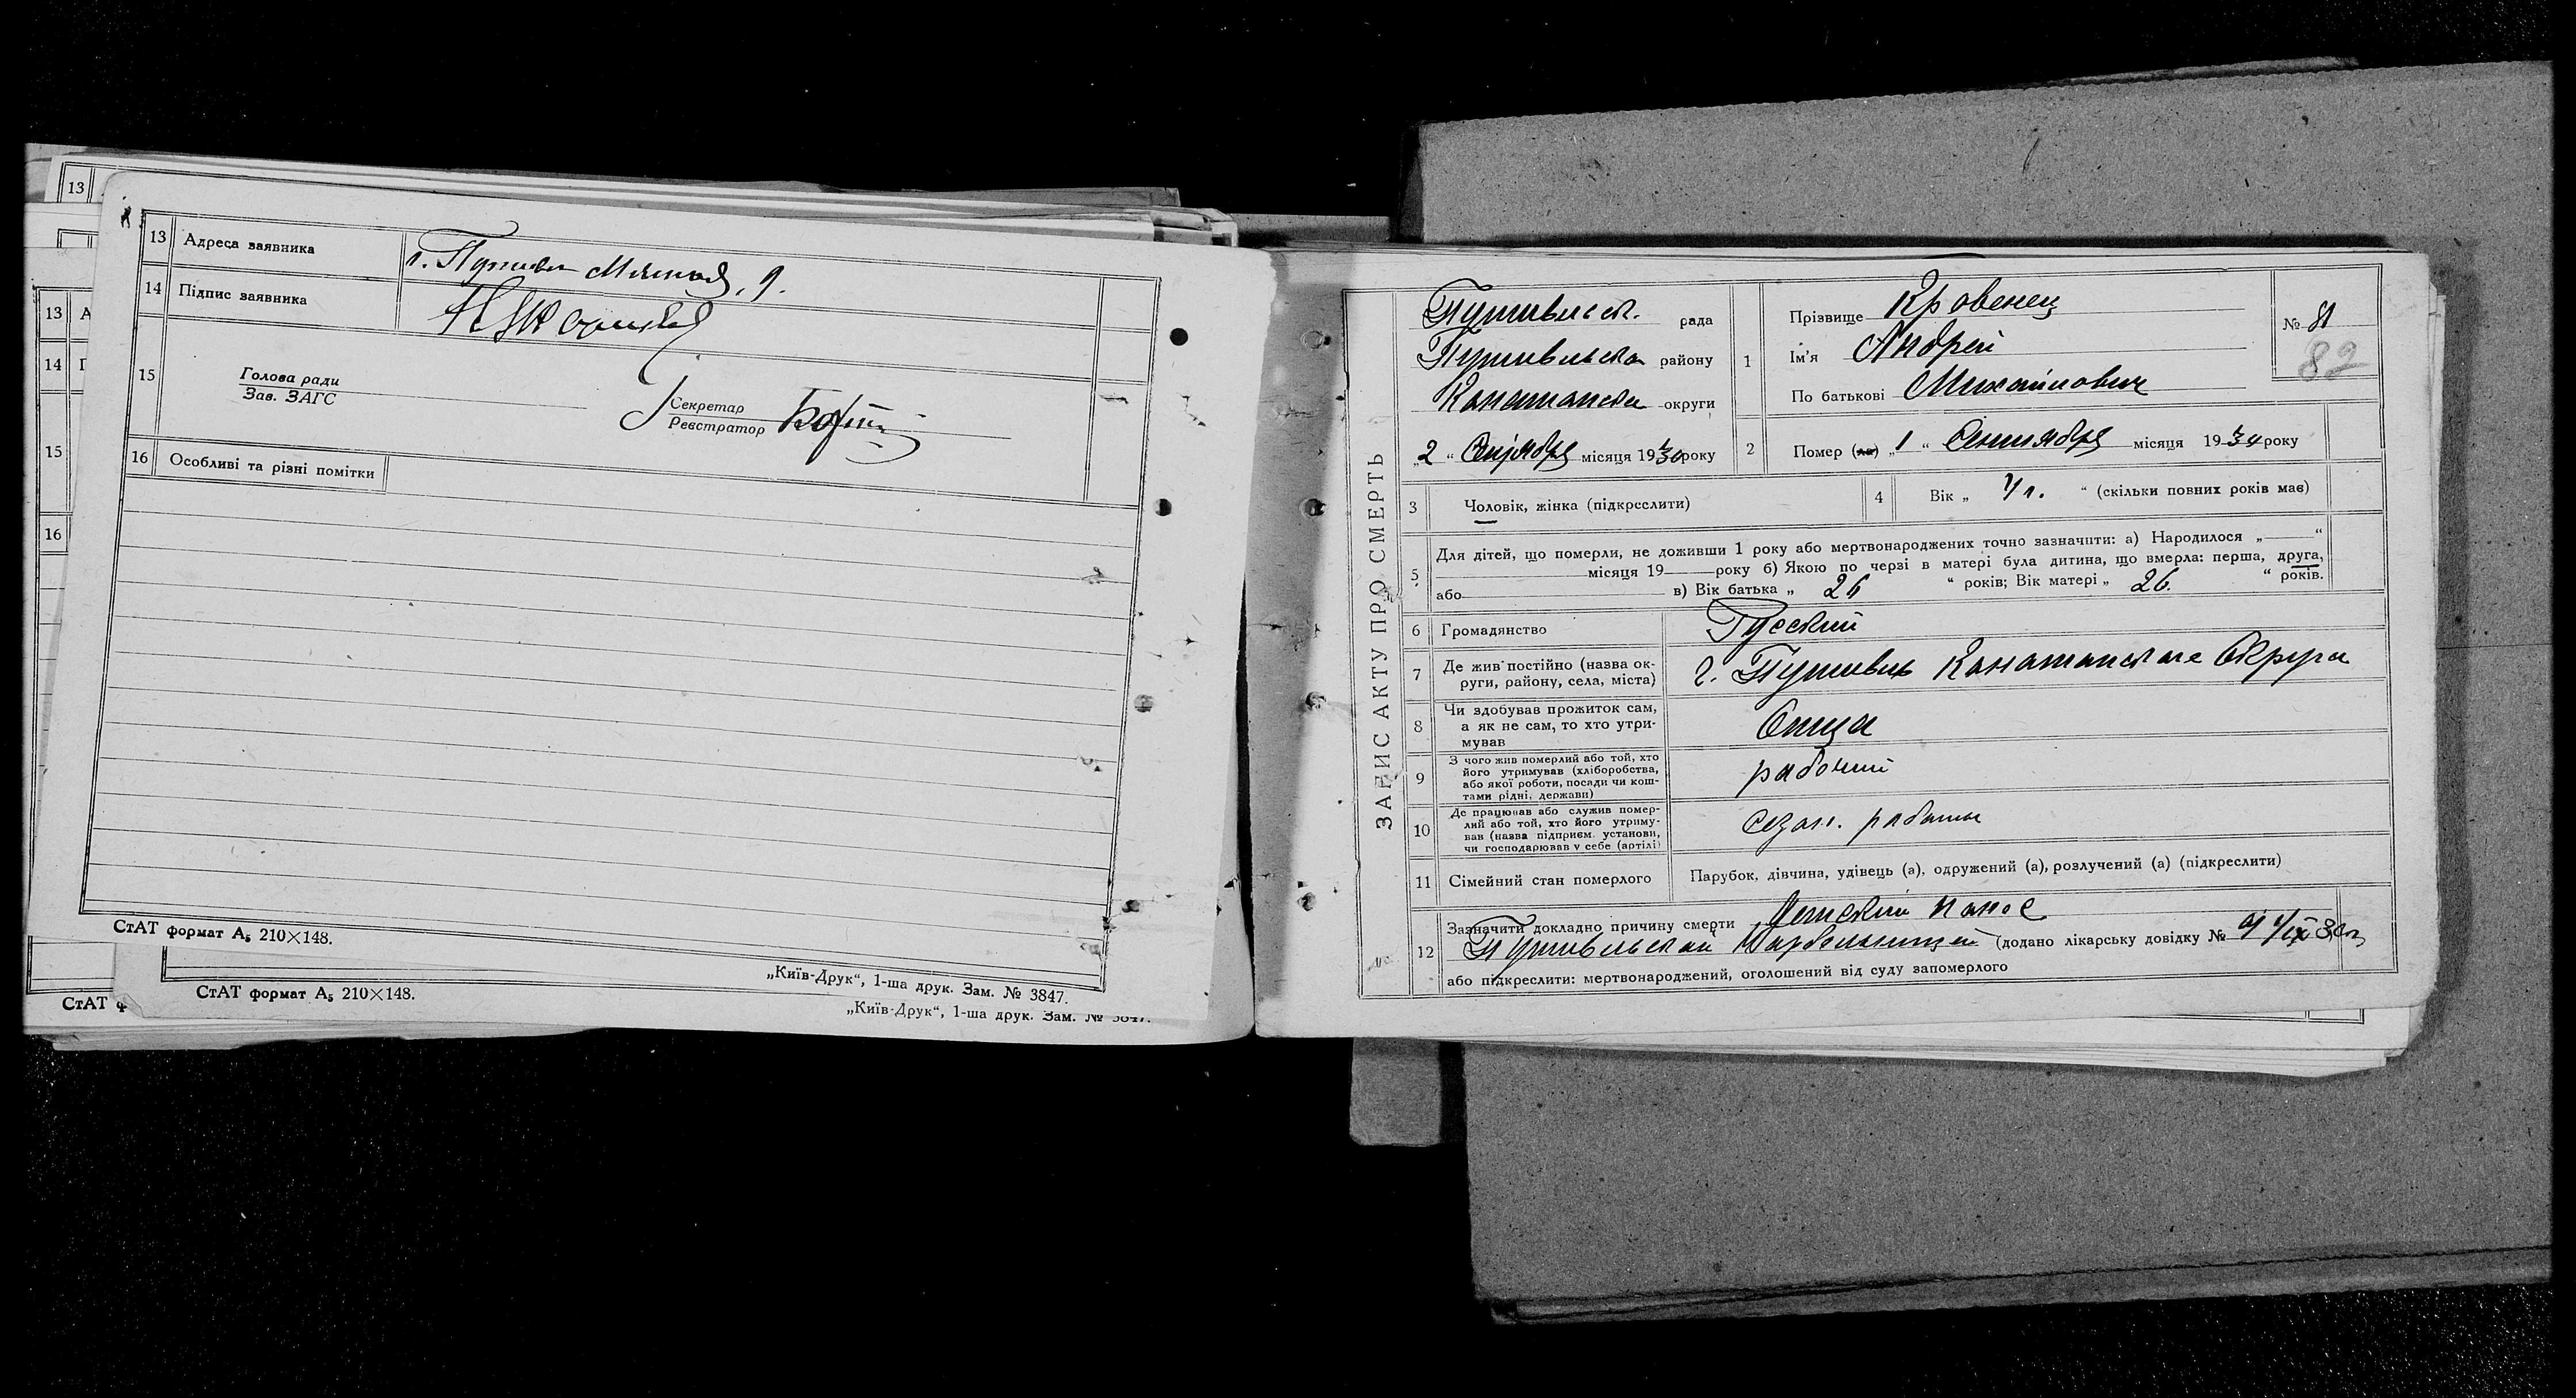 13
13 Адреса заявника г. Путивль
14 Підпис заявника
15 Голова ради
Зав. ЗАГС
Секретар
Реєстратор
16 Особливі та різні помітки
СтАТ формат А₅ 210×148.
„Київ-Друк“, 1-ша друк. Зам. № 3847.
СтАТ формат А₅ 210×148.
„Київ-Друк“, 1-ша друк. Зам. № 3847.
13 А
14 П
15
16
СтАТ ф
ЗАПИС АКТУ ПРО СМЕРТЬ
Путивльск. рада
Путивльска району
Канатапска округи
„2“ Сентября місяця 1930 року
1 Прізвище Кровенец
Ім'я Андрей
По батькові Михайлович
№ 81
82
2 Помер (ла) „1“ Сентября місяця 1930 року
3 Чоловік, жінка (підкреслити)
4 Вік „ г. “ (скільки повних років мав)
5 Для дітей, що померли, не доживши 1 року або мертвонароджених точно зазначити: а) Народилося „ “
місяця 19 року б) Якою по черзі в матері була дитина, що вмерла: перша, друга,
або в) Вік батька „ 26 “ років; Вік матері „ 26 “ років.
6 Громадянство Русский
7 Де жив постійно (назва ок-
руги, району, села, міста) г. Путивль Округа
8 Чи здобував прожиток сам,
а як не сам, то хто утри-
мував Отца
9 З чого жив померлий або той, хто
його утримував (хліборобства,
або якої роботи, посади чи кош-
тами рідні, держави) рабочий
10 Де працював або служив помер-
лий або той, хто його утриму-
вав (назва підприєм. установи,
чи господарював у себе (артілі) сезон. работы
11 Сімейний стан померлого Парубок, дівчина, удівець (а), одружений (а), розлучений (а) (підкреслити)
12 Зазначити докладно причину смерти Детский понос
Путивльской (додано лікарську довідку №
або підкреслити: мертвонароджений, оголошений від суду запомерлого